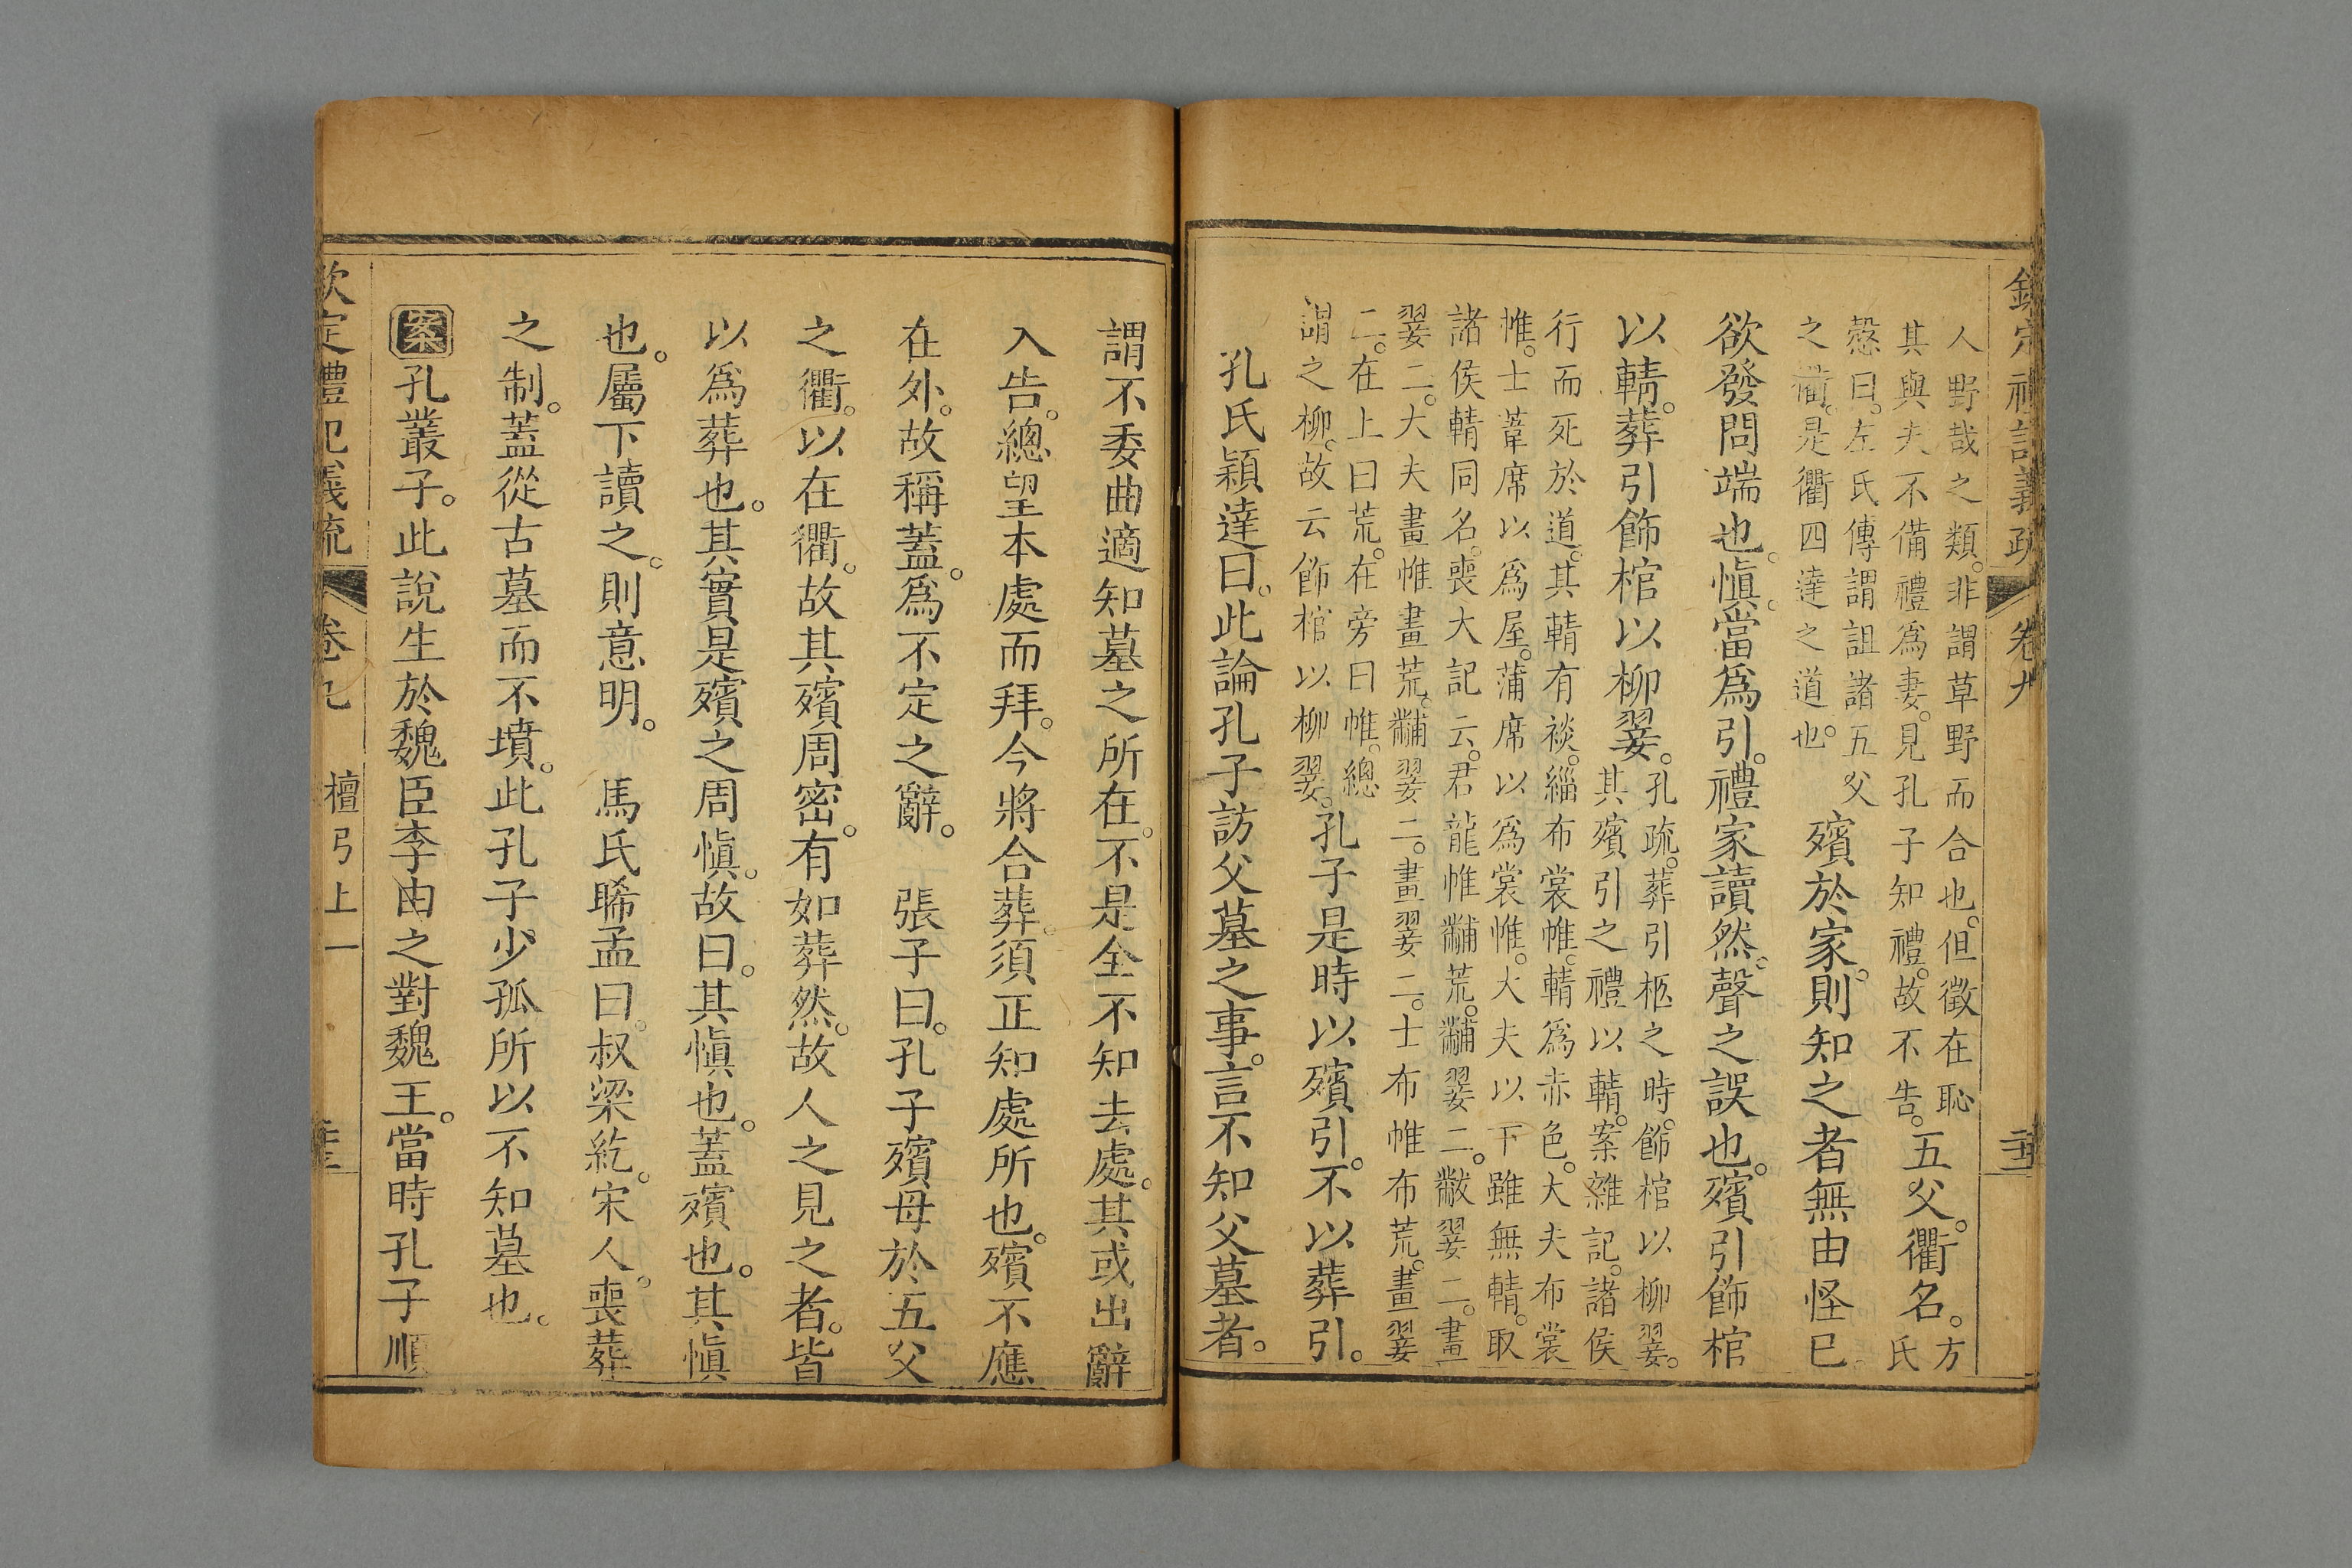 欽定禮記義疏 卷九
人野哉之類。非謂草野而合也。但徵在恥
其與夫不備禮爲妻。見孔子知禮。故不告。
五父。衢名。
方
氏
慤曰。左氏傳謂詛諸五父
之衢。是衢四達之道也。
殯於家。則知之者無由怪已
欲發問端也。愼。當爲引。禮家讀然。聲之誤也。殯引飾棺
以輤。葬引飾棺以柳翣。
孔疏。葬引柩之時。飾棺以柳翣。
其殯引之禮以輤。案雜記。諸侯
行而死於道。其輤有裧。緇布裳帷。輤爲赤色。大夫布裳
帷。士葦席以爲屋。蒲席以爲裳帷。大夫以下雖無輤。取
諸侯輤同名。喪大記云。君龍帷黼荒。黼翣二。黻翣二。畫
翣二。大夫畫帷畫荒。黼翣二。畫翣二。士布帷布荒。畫翣
二。在上曰荒。在旁曰帷。總
謂之柳。故云飾棺以柳翣。
孔子是時以殯引。不以葬引。
孔氏穎達曰。此論孔子訪父墓之事。言不知父墓者。
謂不委曲適知墓之所在。不是全不知去處。其或出辭
入告。總望本處而拜。今將合葬。須正知處所也。殯不應
在外。故稱蓋。爲不定之辭。 張子曰。孔子殯母於五父
之衢。以在衢。故其殯周密。有如葬然。故人之見之者。皆
以爲葬也。其實是殯之周愼。故曰。其愼也。蓋殯也。其愼
也。屬下讀之。則意明。 馬氏睎孟曰。叔梁紇。宋人。喪葬
之制。蓋從古墓而不墳。此孔子少孤所以不知墓也。
案孔叢子。此說生於魏臣李由之對魏王。當時孔子順
欽定禮記義疏 卷九 檀弓上一